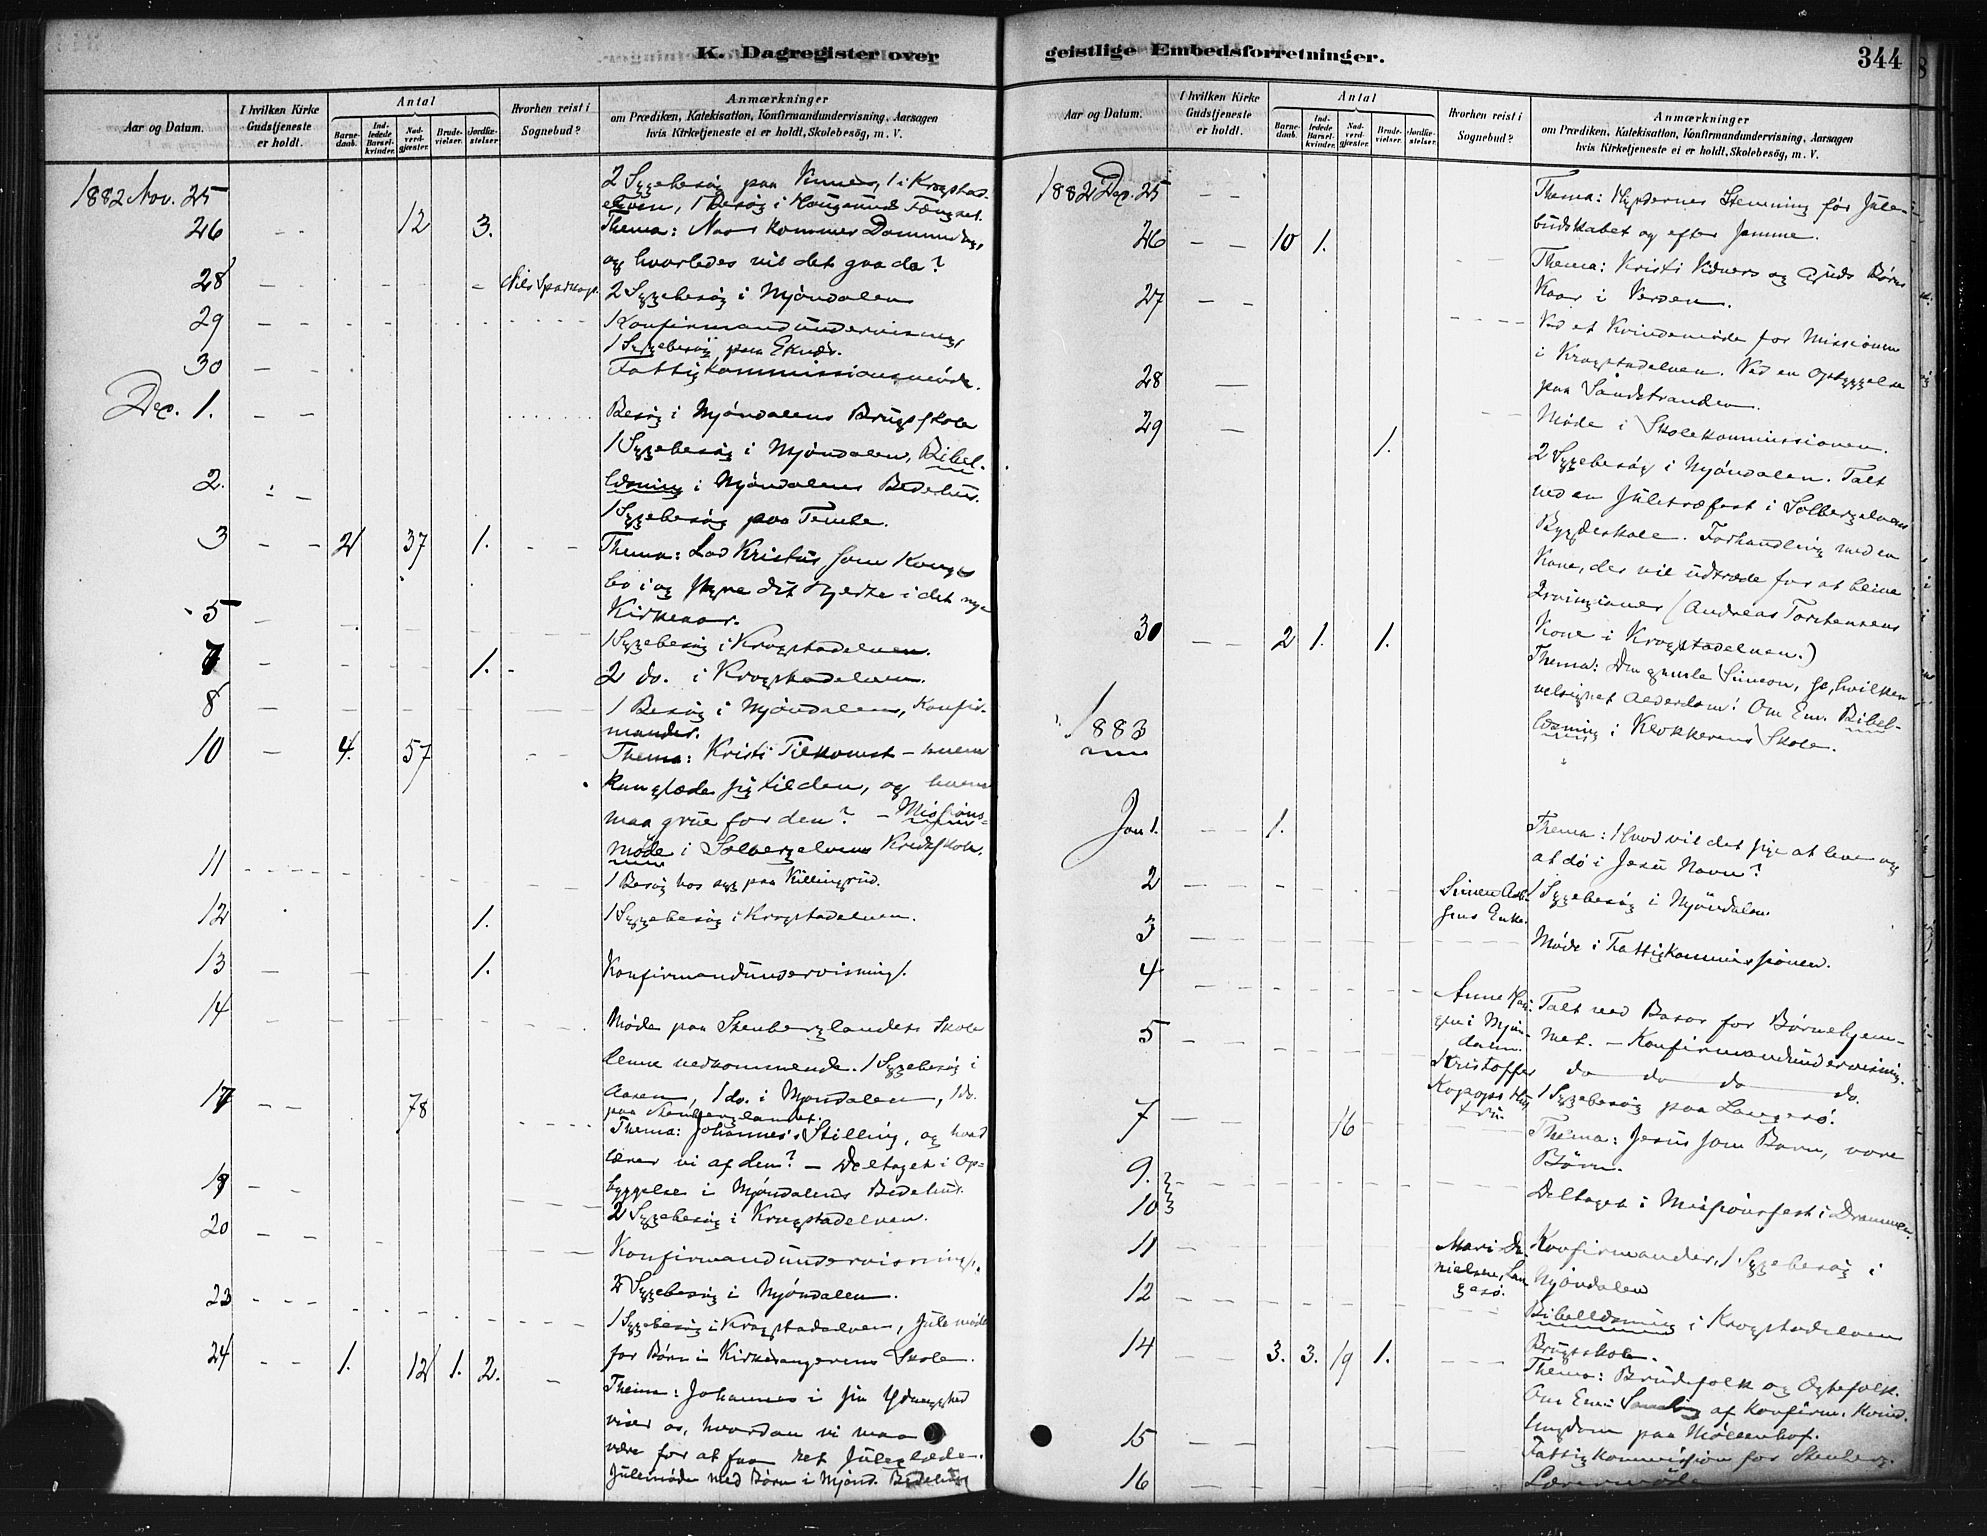 K. Dagregister over
Aar og Datum.
I hvilken Kirke Gudstjeneste er holdt.
Antal
Barnedaab.
Indledede Barselkvinder.
Nadverdgjæster.
Brudevielser.
Jordfæstelser
Hvorhen reist i Sognebud?
Anmærkninger
om Prædiken, Katekisation, Konfirmandundervisning, Aarsagen
hvis Kirketjeneste ei er holdt, Skolebesøg, m. V.
1882 Nov. 25
2 Sygebesøg paa 1 i Krogstad-
elven, 1 Besøg i Hougsunds Fængsel.
26 12 3. Thema: Naar kommer Dommedag,
og hvorledes vil det gaa da?
28 Nils 2 Sygebesøg i Mjøndalen
29 Konfirmandundervisning,
1 Sygebesøg paa
30 Fattigkommissionsmøde.
Dec. 1. Besøg i Mjøndalens Brugsskole
1 Sygebesøg i Mjøndalen, Bibel-
2. læsning i Mjøndalens Bedehus.
1 Sygebesøg paa
3 2 37 1. Thema: Lad Kristus som Konge
bo i og styre dit Hjerte i det nye
Kirkeaar.
5 1 Sygebesøg i Krogstadelven.
7 1. 2 do. i Krogstadelven.
8 1 Besøg i Mjøndalen, Konfir-
mander.
10 4. 57 Thema: Kristi Tilkomst – hvem
kan glæde sig til den, og hvem
maa grue for den? – Missions-
møde i Solbergelvens Kredsskole.
11 1 Besøg hos syg paa Killingrud.
12 1. 1 Sygebesøg i Krogstadelven.
13 1. Konfirmandundervisning.
14 Møde paa Stenberglandets Skole
denne vedkommende. 1 Sygebesøg i
Aasen, 1 do. i Mjøndalen, 1 do.
paa Stenberglandet.
17 78 Thema: Johannes's Stilling, og hvad
lærer vi af dem? – Deltaget i Op-
byggelse i Mjøndalens Bedehus.
19 2 Sygebesøg i Krogstadelven.
20 Konfirmandundervisning.
2 Sygebesøg i Mjøndalen.
23 1 Sygebesøg i Krogstadelven, Julemøde
for Børn i Kirkesangerens Skole.
24 1. 12 1. 2. Thema: Johannes i sin Ydmyghed
viser os, hvordan vi maa
være for at faa ret Juleglæde.
Julemøde med Børn i Mjønd. Bedehus
geistlige Embedsforretninger.
344
Aar og Datum.
I hvilken Kirke Gudstjeneste er holdt.
Antal
Barnedaab.
Indledede Barselkvinder.
Nadverdgjæster.
Brudevielser.
Jordfæstelser.
Hvorhen reist i Sognebud?
Anmærkninger
om Prædiken, Katekisation, Konfirmandundervisning, Aarsagen
hvis Kirketjeneste ei er holdt, Skolebesøg, m. V.
1882 Dec. 25 Thema: Hyrdernes Stemning før Jule-
budskabet og efter samme.
26 10 1. Thema: Kristi Vidners og Guds Børns
Kaar i Verden.
27 Ved et Kvindemøde for Missionen
i Krogstadelven. Ved en Opbyggelse
28 paa Sandstranden.
29 1. Møde i Skolekommissionen.
2 Sygebesøg i Mjøndalen. Talt
ved en Juletræfest i Solbergelvens
Bygdeskole. Forhandling med en
Kone, der vil udtræde for at blive
Irvingianer (Andreas Torstensens
30 2 1. 1. Kone i Krogstadelven.)
Thema: Den gamle Simeon, se, hvilken
velsignet Alderdom! Om Em. Bibel-
læsning i Klokkerens Skole.
1883
Jan 1. 1. Thema: Hvad vil det sige at leve og
at dø i Jesu Navn?
2 Simen 1 Sygebesøg i Mjøndalen
sens Enke.
3 Møde i Fattigkommissionen.
4 Anne Talt ved Basar for Børnehjem-
i Mjøn- met. – Konfirmandundervisning.
dalen.
5 Kristoffer do do do do.
1 Sygebesøg paa Langesø.
7 16 Thema: Jesus som Barn, vore
Børn.
9.
10 Deltaget i Missionsfest i Drammen.
11 Mari Da- Konfirmander, 1 Sygebesøg i
nielsen, Lan- Mjøndalen
gesø.
12 Bibellæsning i Krogstadelvens
Brugsskole.
14 3. 3. 19 1. Thema: Brudefolk og Ægtefolk.
Om Em: Samling af konfirm. Kvind.
Ungdom paa Møllenhof.
15 Fattigkommission for Stenberg.
16 Lærermøde